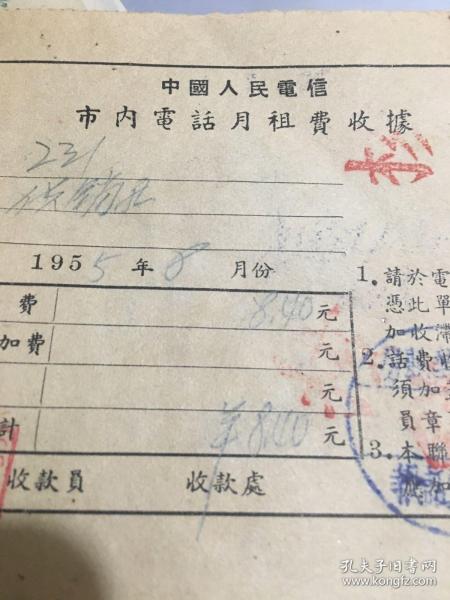 中國人民電信
市內電話月租費收據
221
供銷社
1955年8月份
費 8.40元
加費 元
元
計 ¥8.40元
收款員 收款處
1.請於電
憑此單
加收滯
2.話費收
須加
員章
3.本聯
加
孔夫子旧书网
www.kongfz.com